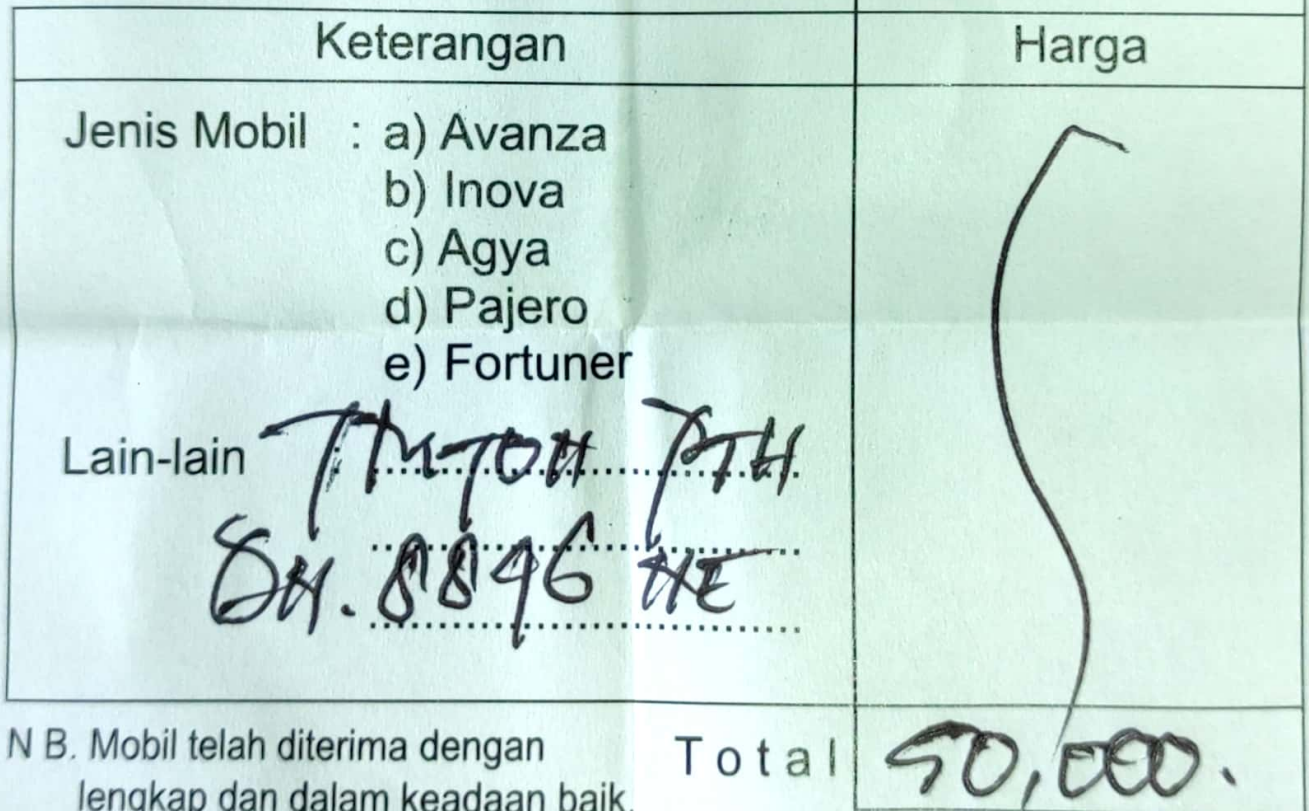 Keterangan Harga
Jenis Mobil : a) Avanza
b) Inova
c) Agya
d) Pajero
e) Fortuner
Lain-lain
8896
Total 50,000.
N B. Mobil telah diterima dengan
lengkap dan dalam keadaan baik.